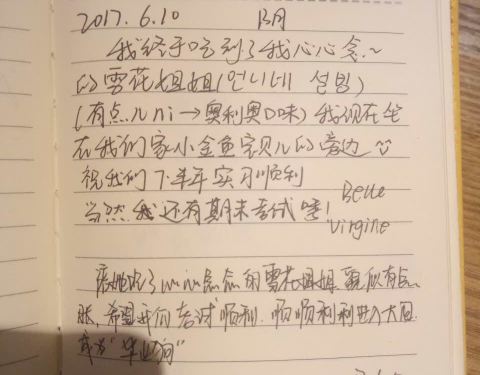 2017.6.10 阴
我终于吃到了我心心念~
的雪花姐姐(언니네 설빙)
(有点儿ni→奥利奥口味) 我现在坐
在我们家小金鱼宝贝儿的旁边
祝我们下半年实习顺利
当然我还有期末考试哇! Belle
Virgine
吃了心心念念的雪花姐姐, 貌似有点
胀, 希望我们考试顺利. 顺顺利利进入大四
成为"毕业狗"